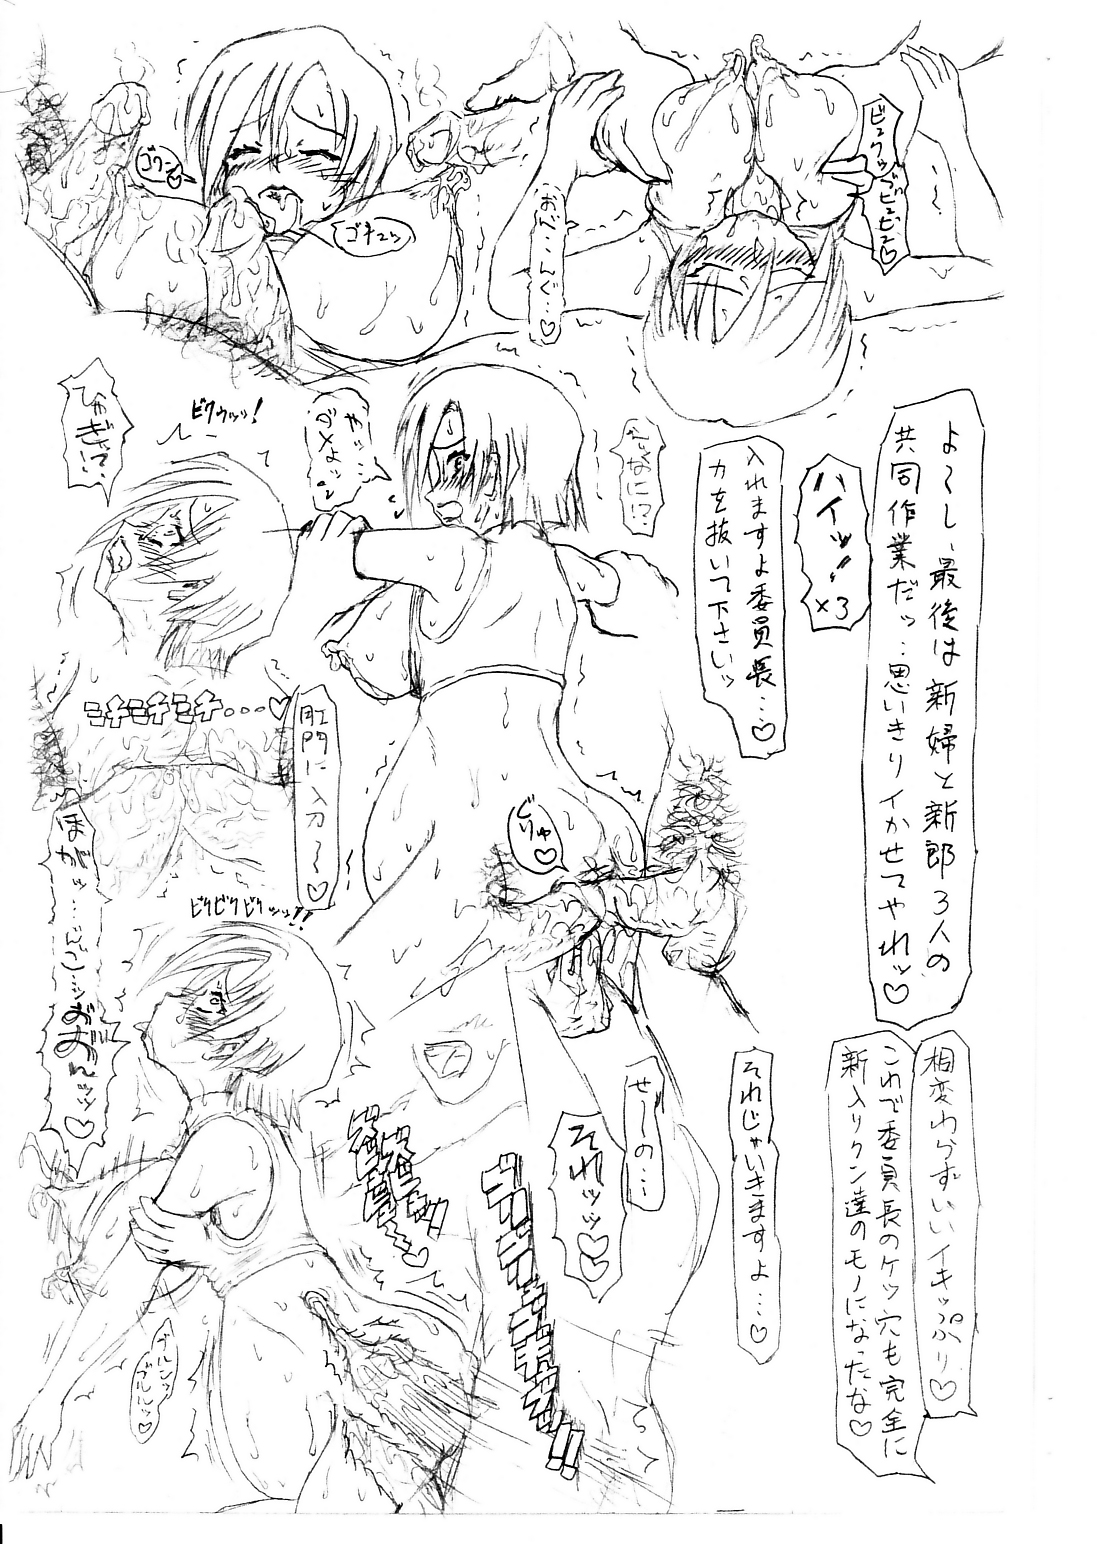 ビュクッブビュビュ♡
おべ…んぐ…♡
ゴキュッ
ゴクン♡
よ〜し、最後は新婦と新郎3人の
共同作業だッ…思いきりイかせてやれッ♡
ハイッ!! ×3
入れますよ委員長…♡
力を抜いて下さいッ
や…
ダメよッ
ビクゥッッ!
ひぎゃっ!?
ミチミチミチ…♡
肛門に入刀〜♡
相変わらずいいイキっぷり♡
これで委員長のケツ穴も完全に
新入りクン達のモノになったな♡
それじゃいきますよ…♡
せーの…
それッッ♡
ビクビクビクッッ!!
ブルンッ
ブルルッ♡